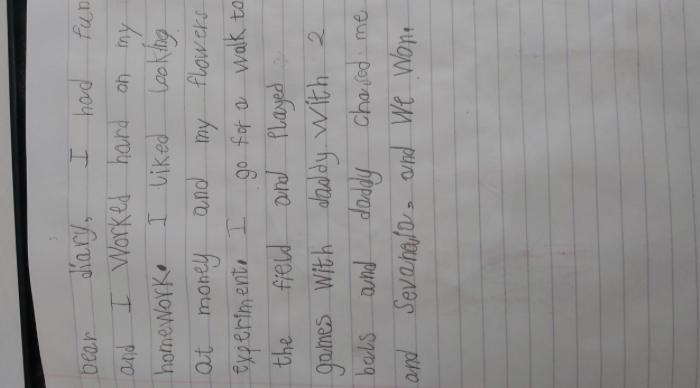 Dear diary, I had fun
and I Worked hard on my
homework. I liked looking
at money and my flowers
experiment. I go for a walk to
the field and Played
games With daddy With 2
balls and daddy chased me
and Sevanaia. and We Won.